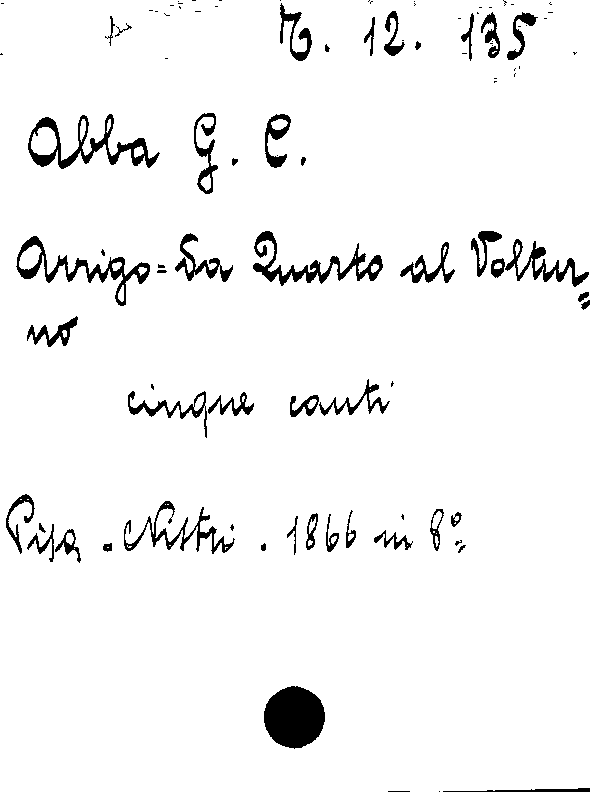 12. 135
Abba G. C.
Arrigo = Da Quarto al Voltur=
no
cinque canti
Pisa. Nistri. 1866 in 8º